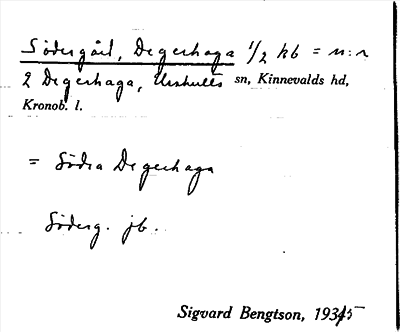 Södergård, Degerhaga 1/2 hb = n:r
2 Degerhaga, Urshults sn, Kinnevalds hd,
Kronob. l.
= Södra Degerhaga
Söderg. jb.
Sigvard Bengtson, 1935